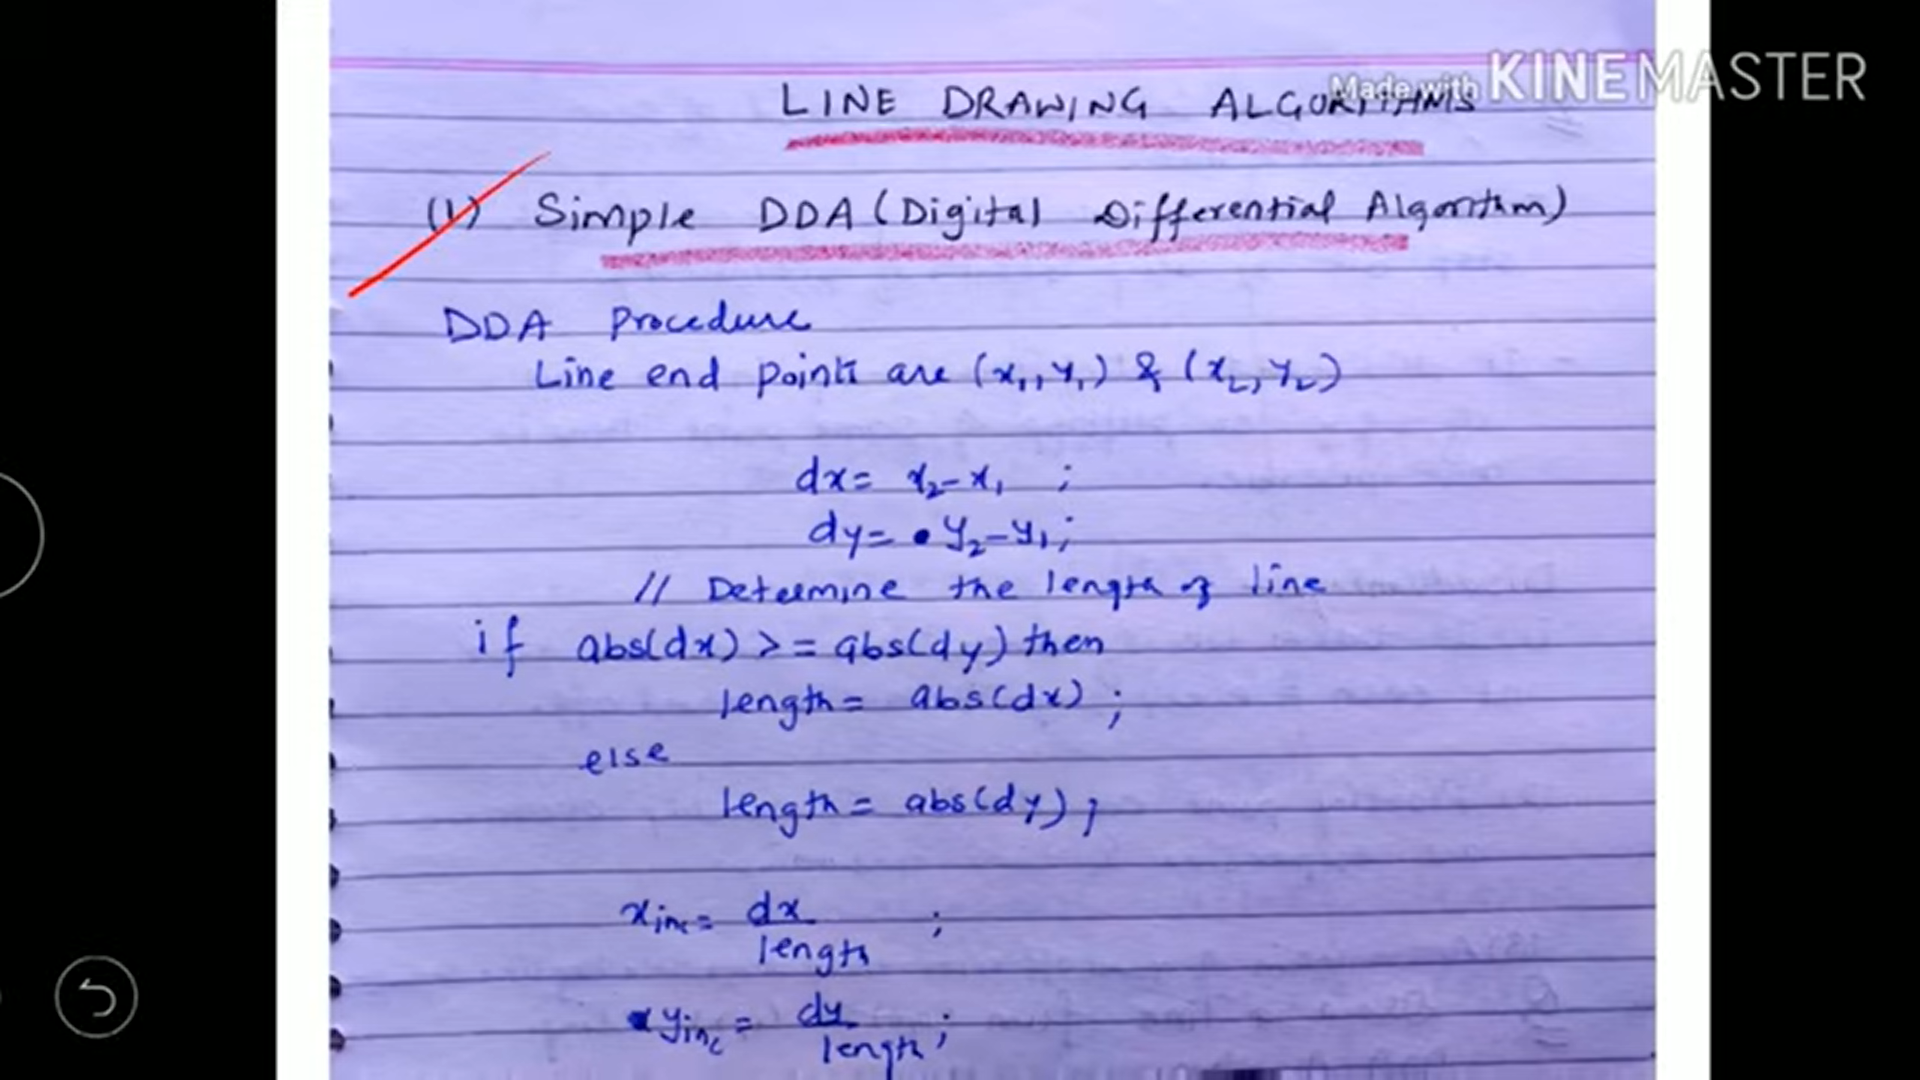 Made with KINEMASTER
LINE DRAWING ALGORITHMS
(1) Simple DDA (Digital Differential Algorithm)
DDA Procedure
Line end points are (x₁, y₁) & (x₂, y₂)
dx = x₂ - x₁ ;
dy = y₂ - y₁ ;
// Determine the length of line
if abs(dx) >= abs(dy) then
length = abs(dx) ;
else
length = abs(dy) ;
xinc = dx ;
length
yinc = dy ;
length